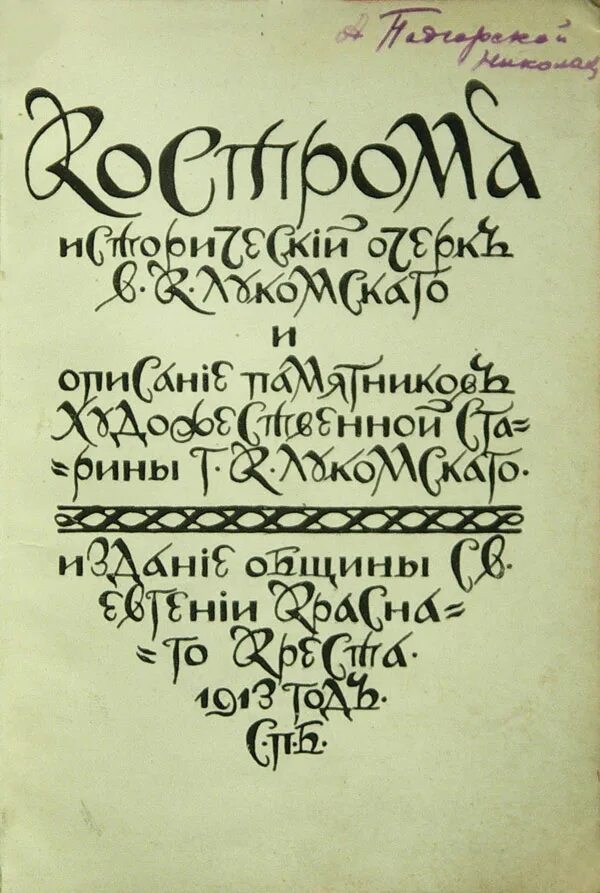 Подгорской
Николая
Кострома
историческій очеркъ
В. К. Лукомскаго
и
описаніе памятниковъ
художественной ста=
=рины Г. К. Лукомскаго.
изданіе общины Св.
Евгеніи Красна=
=го Креста.
1913 годъ.
С.П.Б.